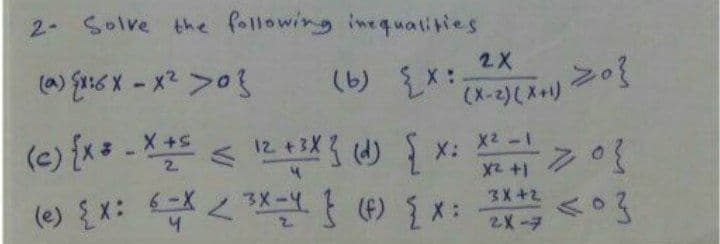 2- Solve the following inequalities
(a) {x:6x - x² >0} (b) {x: 2x/(x-2)(x+1) ≥0}
(c) {x: - x+5/2 ≤ 12+3x/4} (d) {x: x²-1/x²+1 ≥ 0}
(e) {x: 6-x/4 < 3x-4/2} (f) {x: 3x+2/2x-7 ≤0}